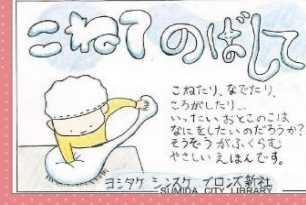 こねてのばして
こねたり、なでたり、
ころがしたり…
いったいおとこのこは
なにをしたいのだろうか?
そうぞうがふくらむ
やさしいえほんです。
ヨシタケシンスケ ブロンズ新社
SUMIDA CITY LIBRARY